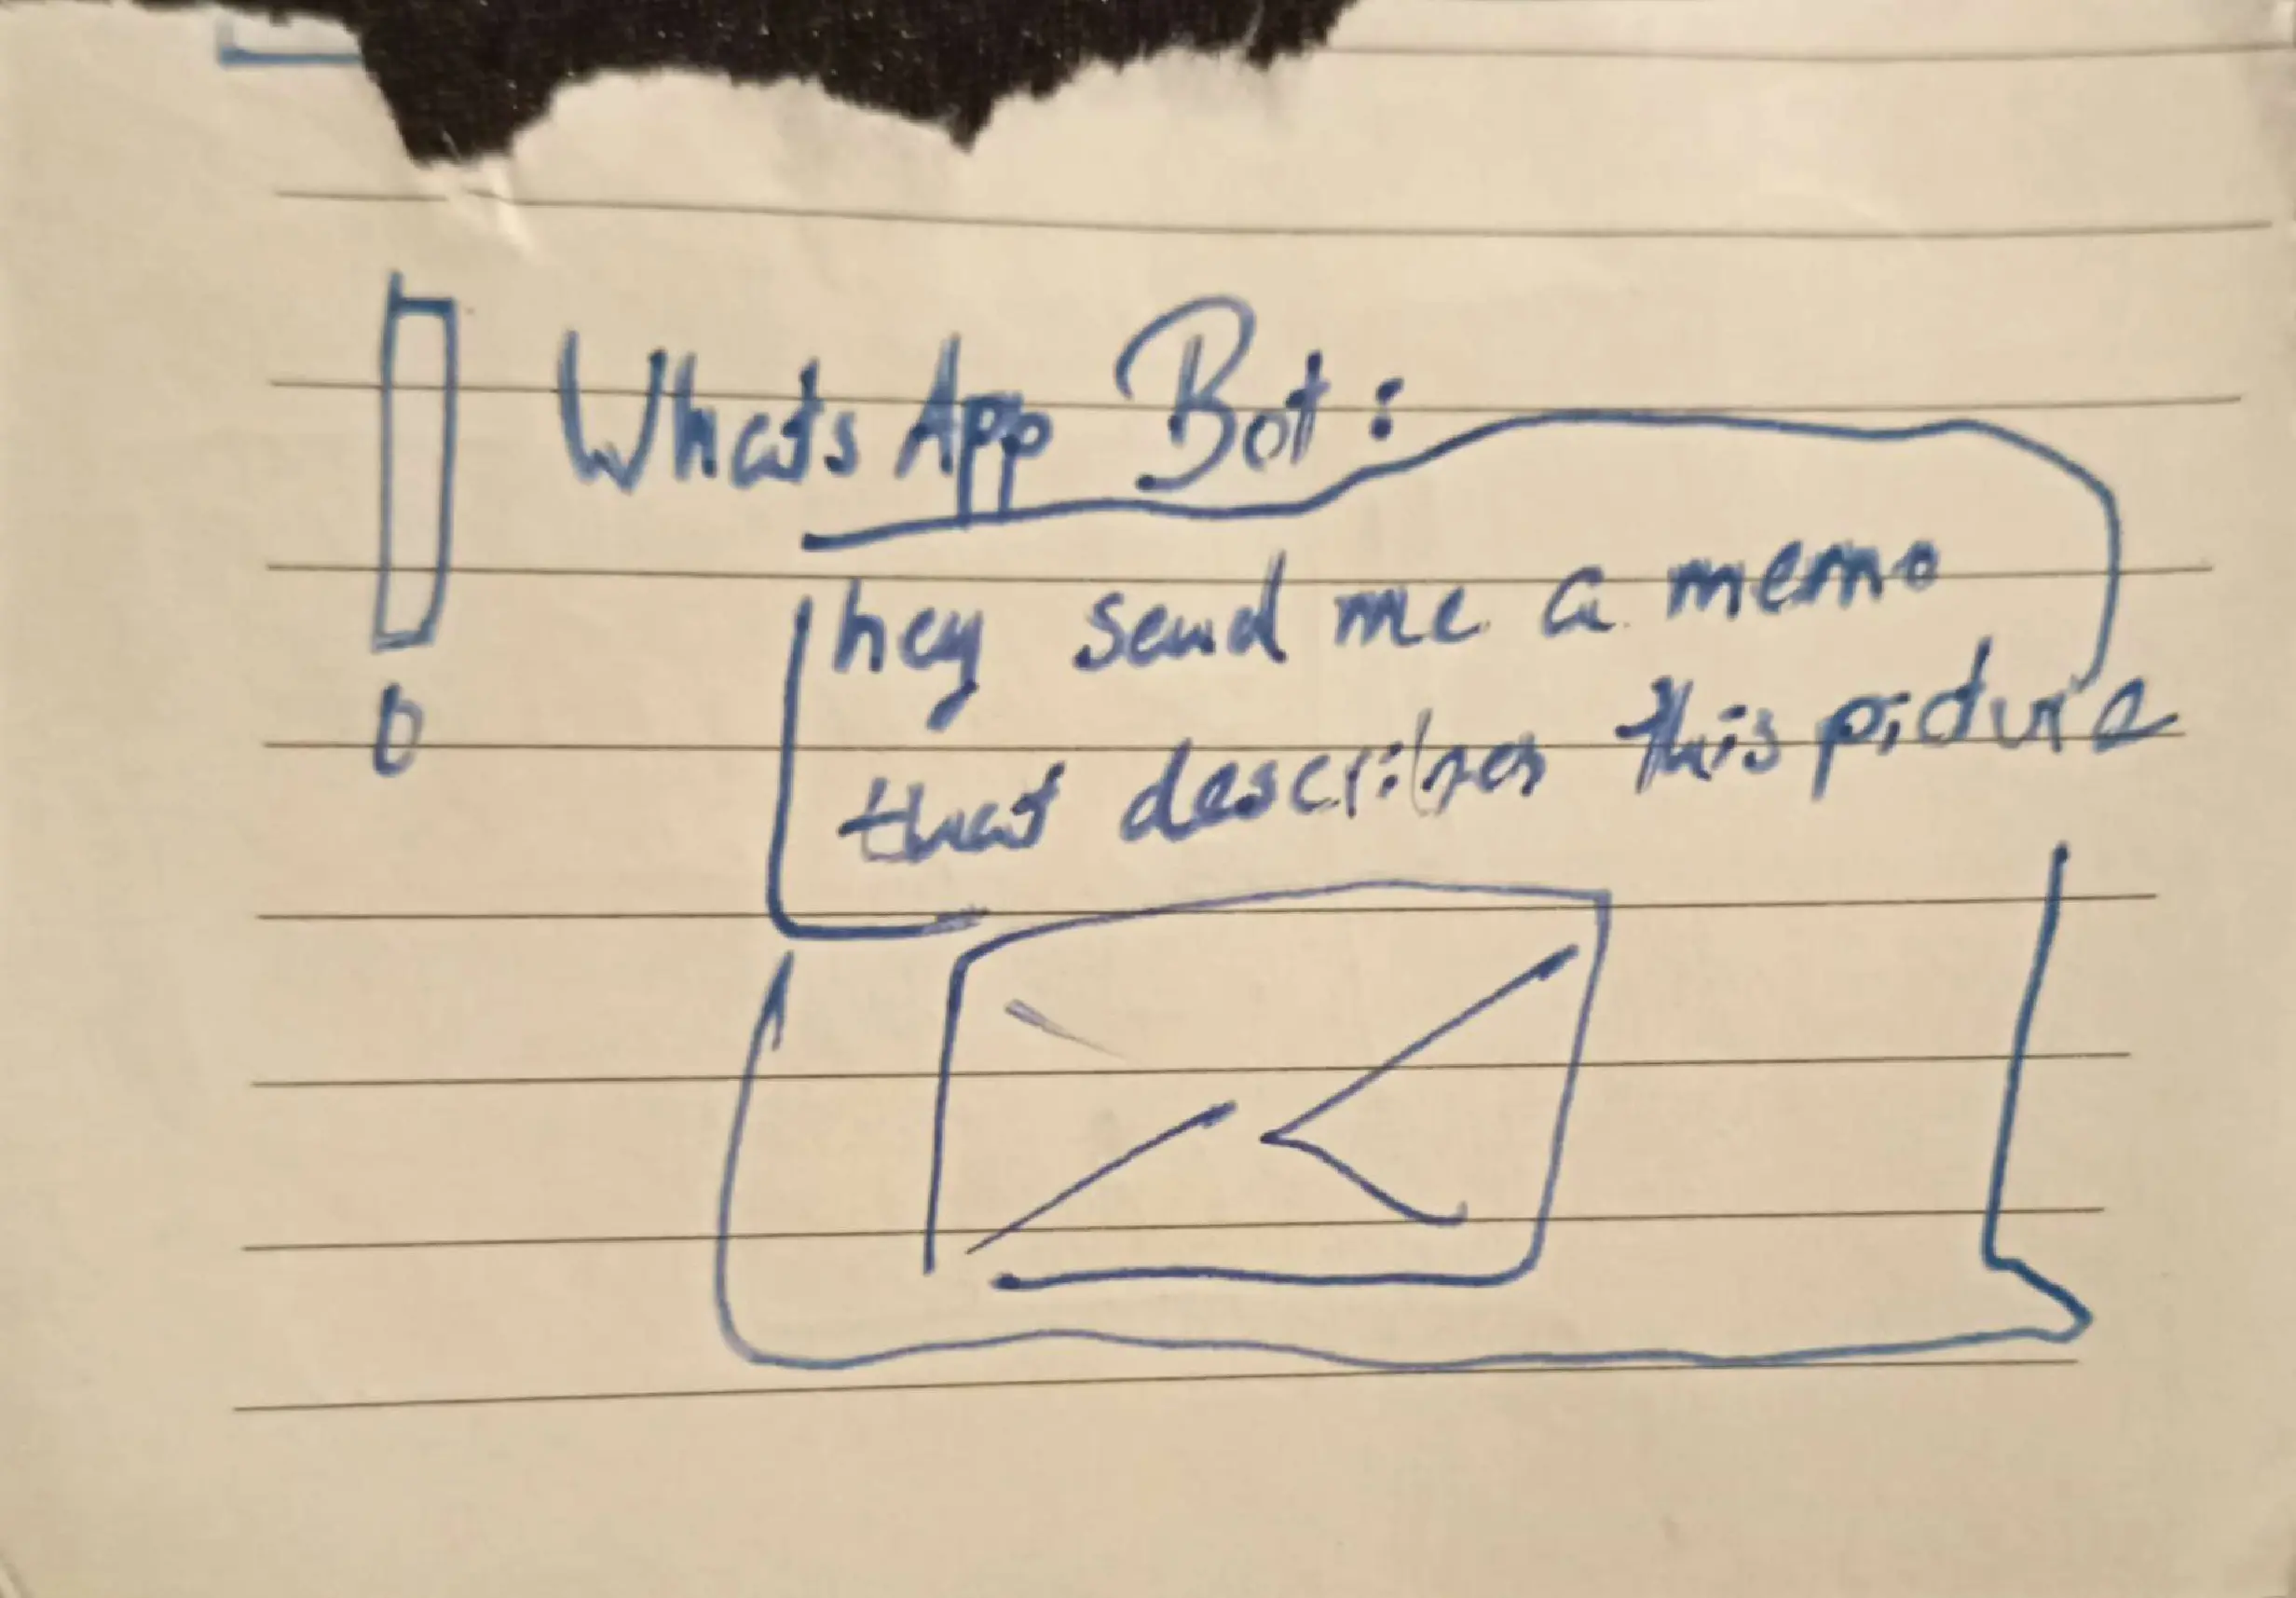 WhatsApp Bot:
hey send me a memo
that describes this picture